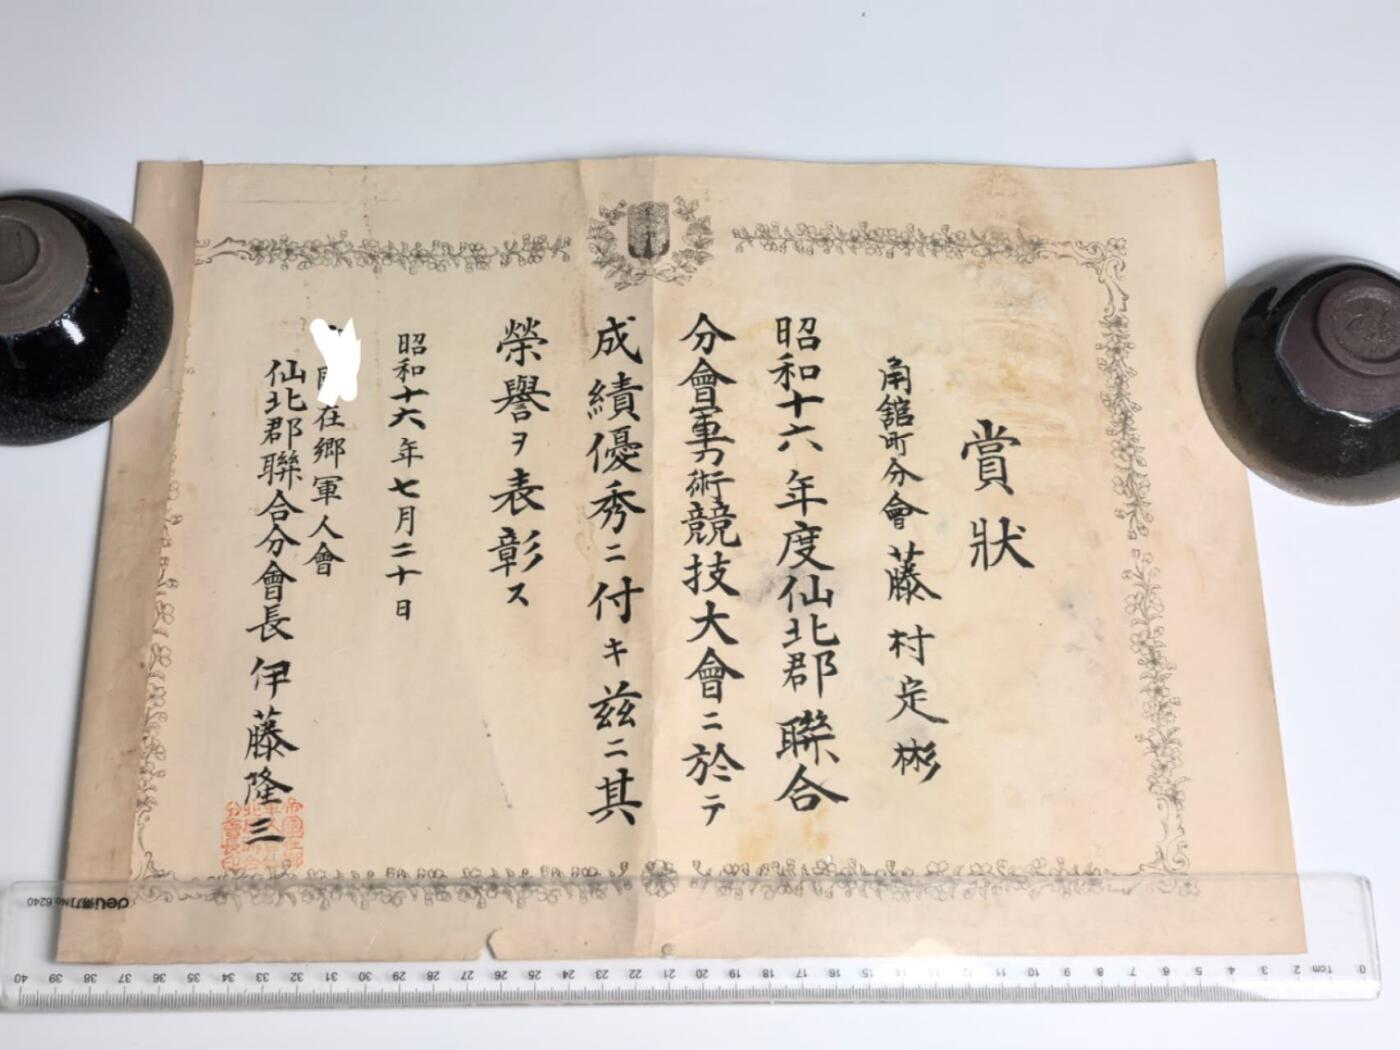 賞狀
角舘町分會 藤村定彬
昭和十六年度仙北郡聯合
分會軍刀術競技大會ニ於テ
成績優秀ニ付キ茲ニ其
榮譽ヲ表彰ス
昭和十六年七月二十日
在鄉軍人會
仙北郡聯合分會長 伊藤隆三
deli 得力 No 6240
0 1cm 2 3 4 5 6 7 8 9 10 11 12 13 14 15 16 17 18 19 20 21 22 23 24 25 26 27 28 29 30 31 32 33 34 35 36 37 38 39 40